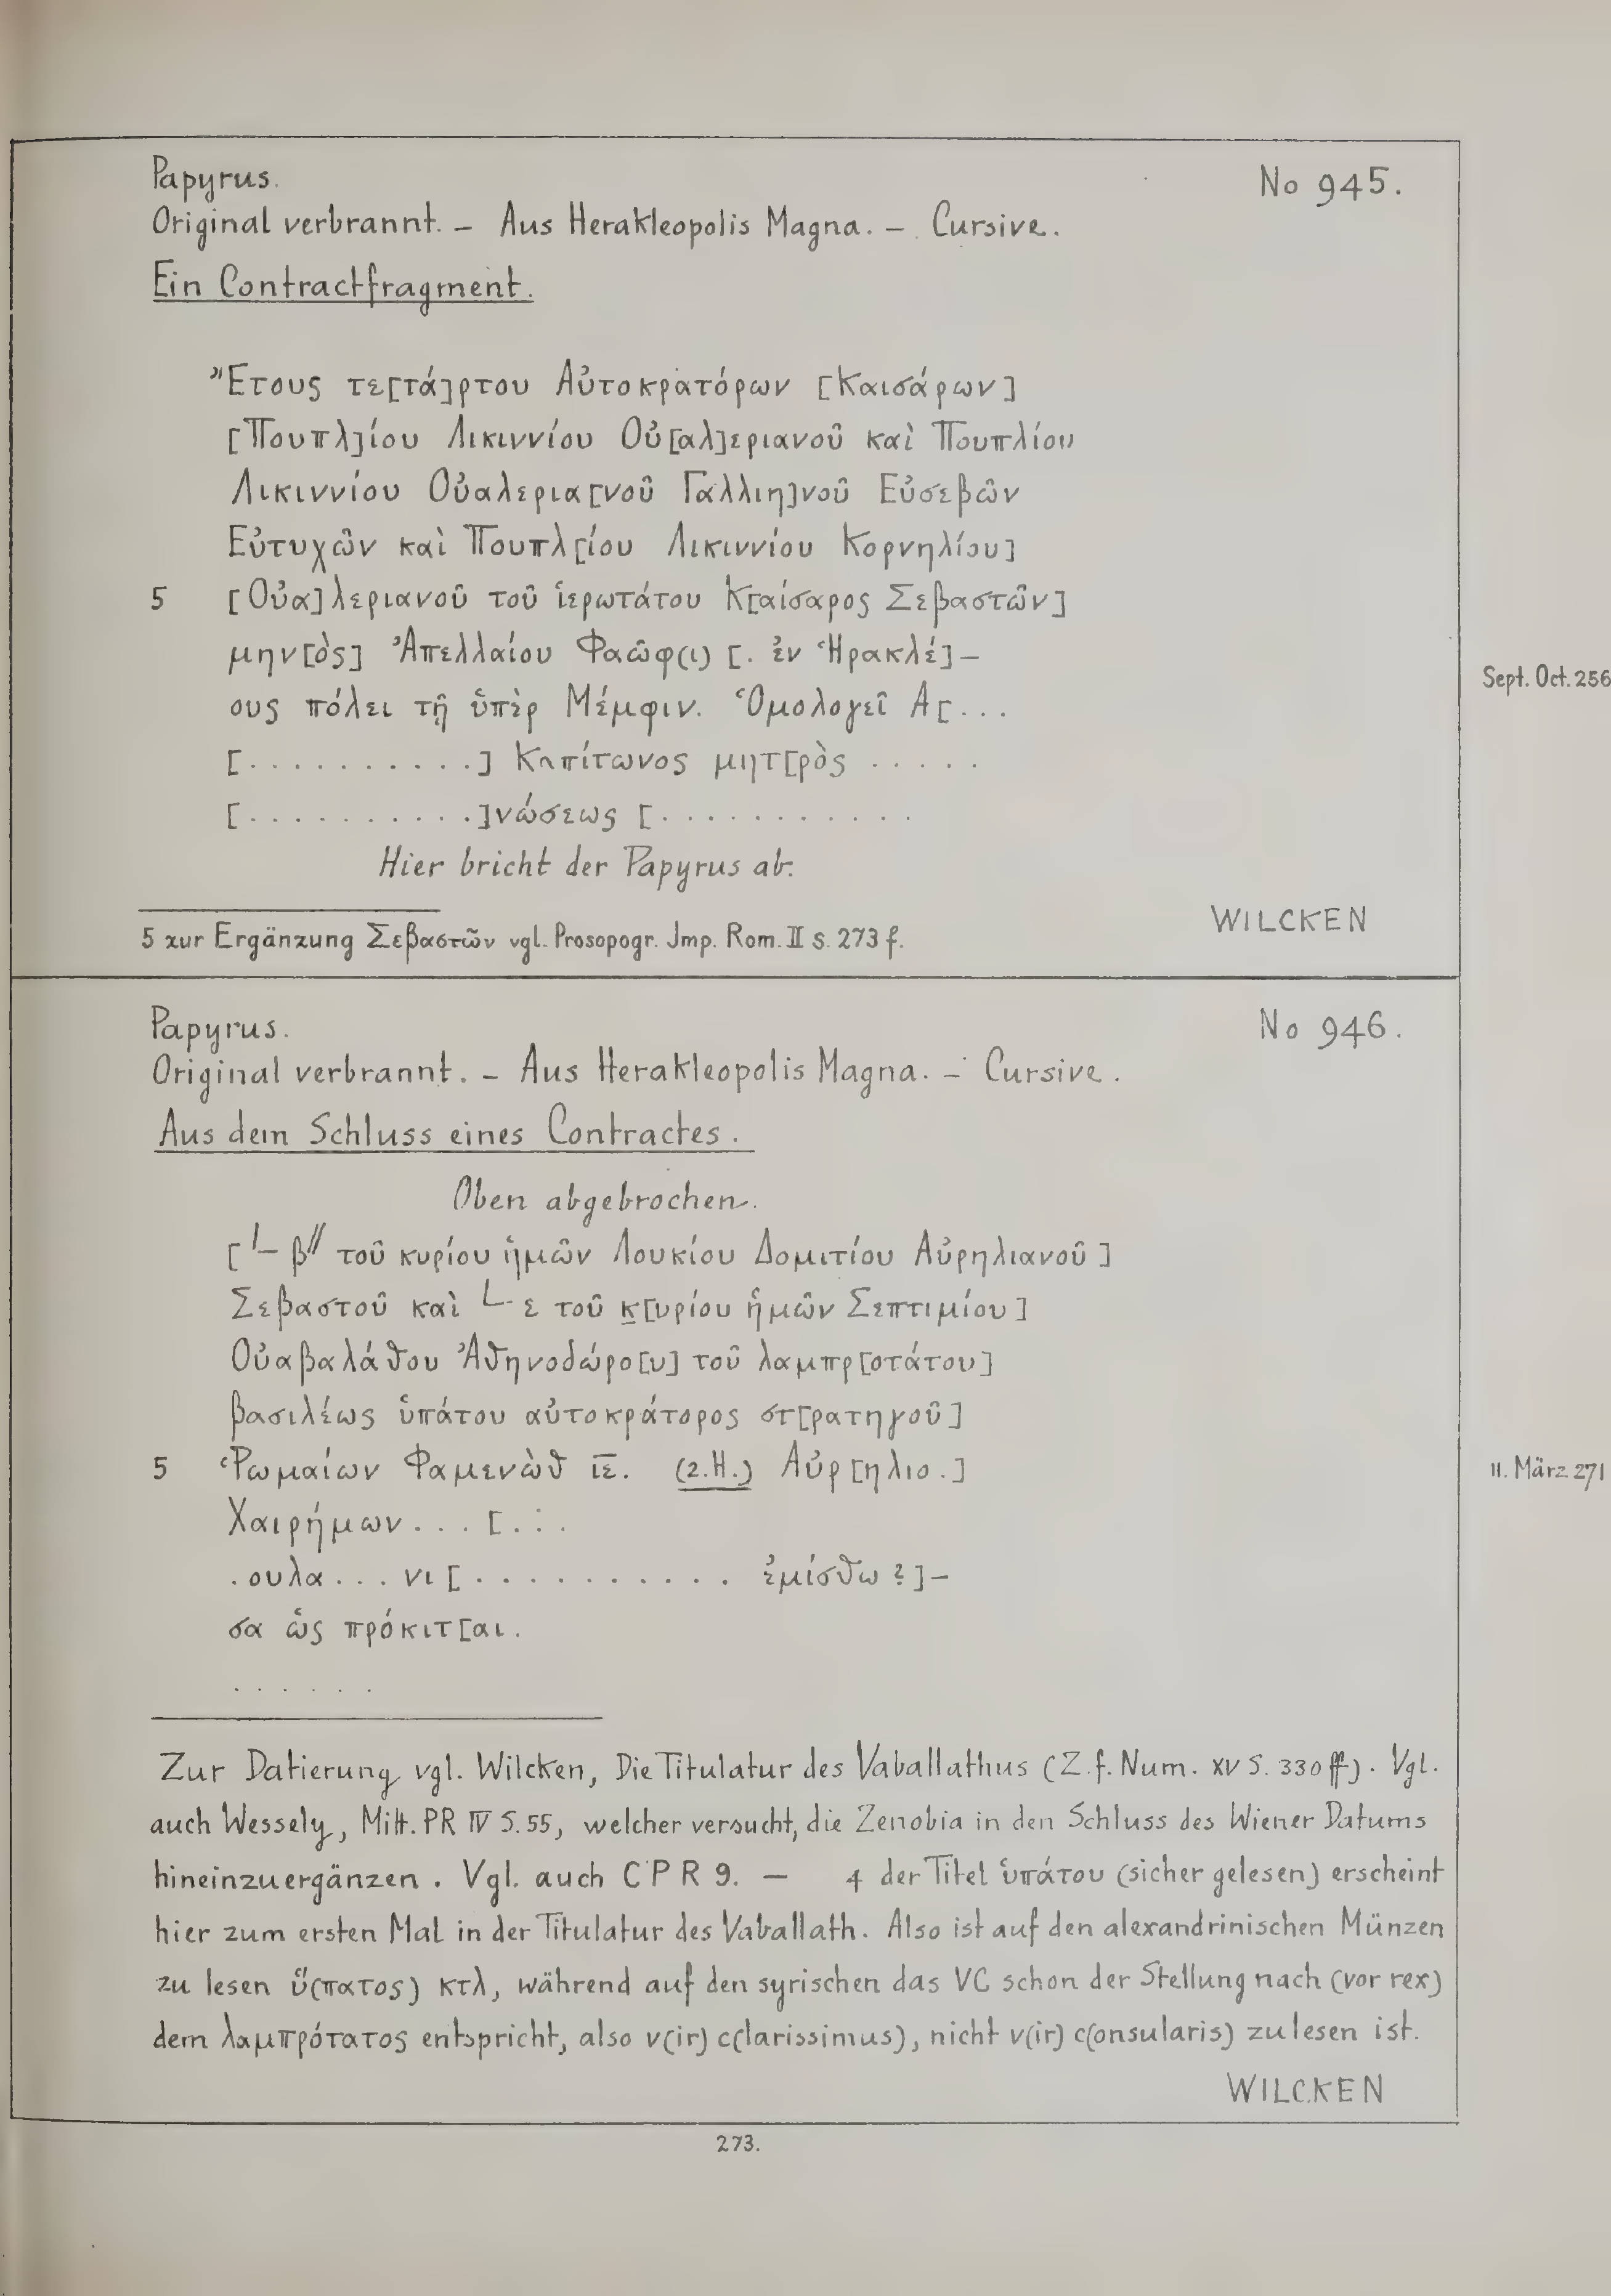 Papyrus. No 945.
Original verbrannt. – Aus Herakleopolis Magna. – Cursive.
Ein Contractfragment.
Ἔτους τε[τά]ρτου Αὐτοκρατόρων [Καισάρων]
[Πουπλ]ίου Λικιννίου Οὐ[αλ]εριανοῦ καὶ Πουπλίου
Λικιννίου Οὐαλερια[νοῦ Γαλλιη]νοῦ Εὐσεβῶν
Εὐτυχῶν καὶ Πουπλ[ίου Λικιννίου Κορνηλίου]
5 [Οὐα]λεριανοῦ τοῦ ἱερωτάτου Κ[αίσαρος Σεβαστῶν]
μην[ὸς] Ἀπελλαίου Φαῶφ(ι) [. ἐν Ἡρακλέ]–
Sept. Oct. 256
ους πόλει τῇ ὑπὲρ Μέμφιν. Ὁμολογεῖ Α[...
[..........] Καπίτωνος μητ[ρὸς .....
[..........]νώσεως [...........
Hier bricht der Papyrus ab.
WILCKEN
5 zur Ergänzung Σεβαστῶν vgl. Prosopogr. Jmp. Rom. II S. 273 f.
Papyrus. No 946.
Original verbrannt. – Aus Herakleopolis Magna. – Cursive.
Aus dem Schluss eines Contractes.
Oben abgebrochen.
[ L β// τοῦ κυρίου ἡμῶν Λουκίου Δομιτίου Αὐρηλιανοῦ ]
Σεβαστοῦ καὶ L ε τοῦ κ̣[υρίου ἡμῶν Σεπτιμίου]
Οὐαβαλάθου Ἀθηνοδώρο[υ] τοῦ λαμπρ[οτάτου]
βασιλέως ὑπάτου αὐτοκράτορος στ[ρατηγοῦ]
5 Ῥωμαίων Φαμενὼθ ι̅ε̅. (2.H.) Αὐρ[ηλιο.]
11. März 271
Χαιρήμων...[...
.ουλα...νι[........... ἐμίσθω?]–
σα ὡς πρόκιτ[αι.
......
Zur Datierung vgl. Wilcken, Die Titulatur des Vaballathus (Z.f. Num. XV S. 330 ff). Vgl.
auch Wessely, Mitt. PR IV S. 55, welcher versucht, die Zenobia in den Schluss des Wiener Datums
hineinzuergänzen. Vgl. auch CPR 9. – 4 der Titel ὑπάτου (sicher gelesen) erscheint
hier zum ersten Mal in der Titulatur des Vaballath. Also ist auf den alexandrinischen Münzen
zu lesen ὕ(πατος) κτλ, während auf den syrischen das VC schon der Stellung nach (vor rex)
dem λαμπρότατος entspricht, also v(ir) c(larissimus), nicht v(ir) c(onsularis) zu lesen ist.
WILCKEN
273.